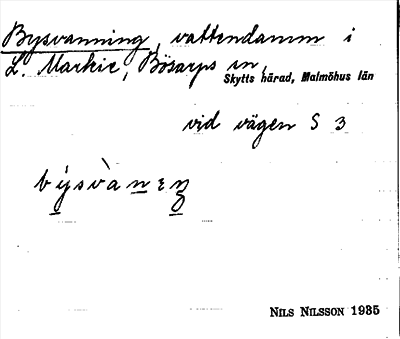 Bysvanning, vattendamm i
L. Markie, Bösarps sn,
Skytts härad, Malmöhus län
vid vägen S 3
býsvànɛŋ
NILS NILSSON 1935